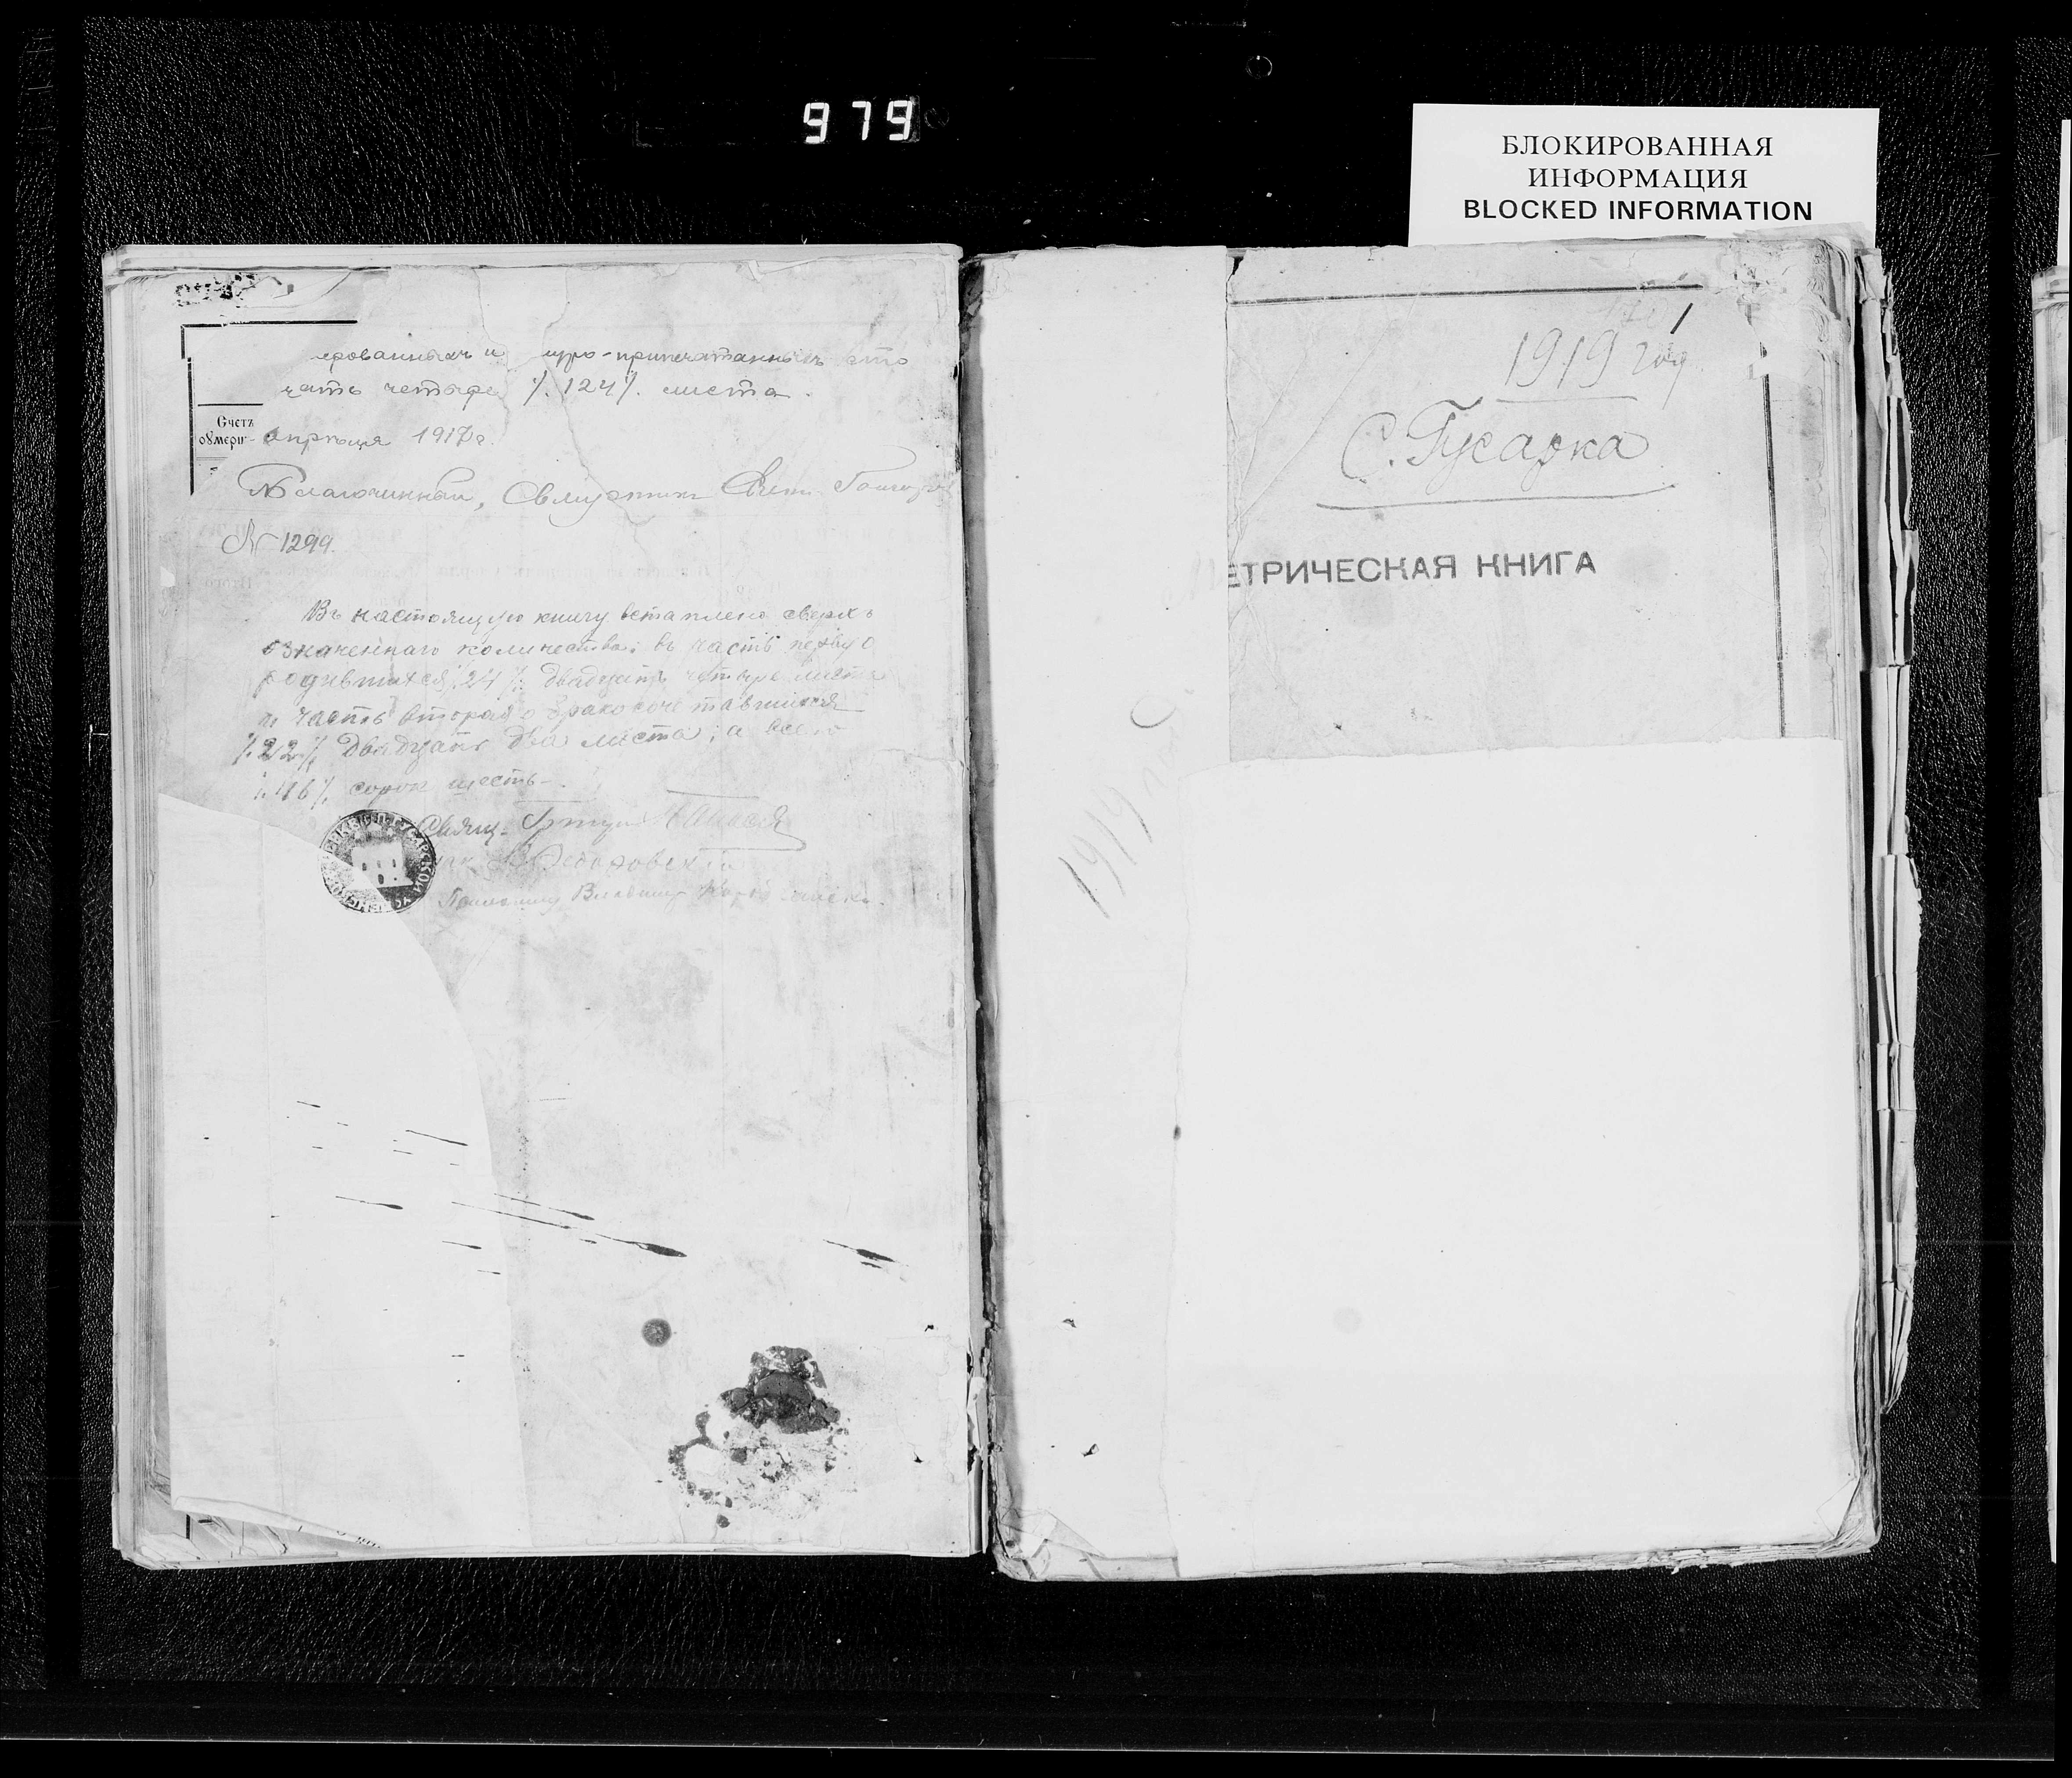 979
БЛОКИРОВАННАЯ
ИНФОРМАЦИЯ
BLOCKED INFORMATION
шнуро-припечатанныхъ сто
четыре ٪ 124 ٪ листа.
Счетъ
умерш-
апрѣля 1917 г.
Благочинный, Священникъ
№ 1299.
Въ настоящую книгу вставлено сверхъ
означеннаго количества: въ часть первую о
родившихся ٪ 24 ٪ двадцать четыре листа
часть вторая о бракосочетавшихся
٪ 22 ٪ двадцать два листа; а всего
٪ 46 ٪ сорокъ шесть
Свящ.
Владимир
1919 год
С. Гусарка
ЕТРИЧЕСКАЯ КНИГА
1919